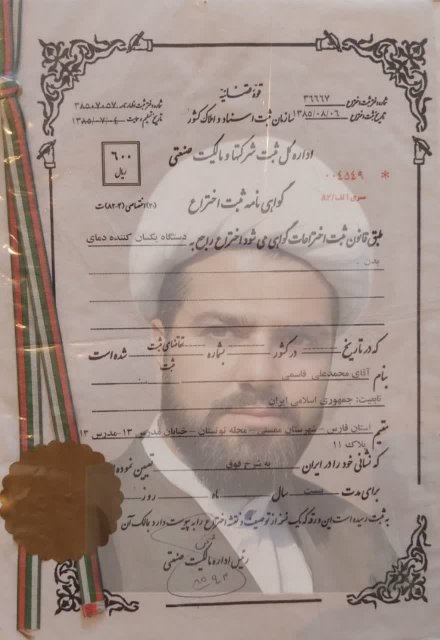 قوه قضائیه
شماره ثبت اختراع ۳۶۶۶۷
تاریخ ثبت اختراع ۱۳۸۵/۰۸/۰۶
سازمان ثبت اسناد و املاک کشور
شماره دفتر ثبت اظهارنامه ۳۸۵۰۷۰۵۷
اداره کل ثبت شرکتها و مالکیت صنعتی
۶۰۰
ریال
* ۰۰۴۵۴۹
سری الف/۸۲
گواهی نامه ثبت اختراع
طبق قانون ثبت اختراعات گواهی می شود اختراع راجع به دستگاه یکسان کننده دمای
بدن .
که در تاریخ در کشور بشماره تقاضای ثبت شده است
ثبت
بنام آقای محمدعلی قاسمی
تابعیت: جمهوری اسلامی ایران
مقیم استان فارس - شهرستان ممسنی - محله تونستان - خیابان مدرس ۱۳-مدرس ۱۳
پلاک ۱۱
که نشانی خود را در ایران به شرح فوق تعیین نموده
برای مدت بیست سال ماه روز
به ثبت رسیده است این ورقه که یک نسخه از توصیف و نقشه اختراع را به پیوست دارد به مالک آن
رئیس اداره مالکیت صنعتی